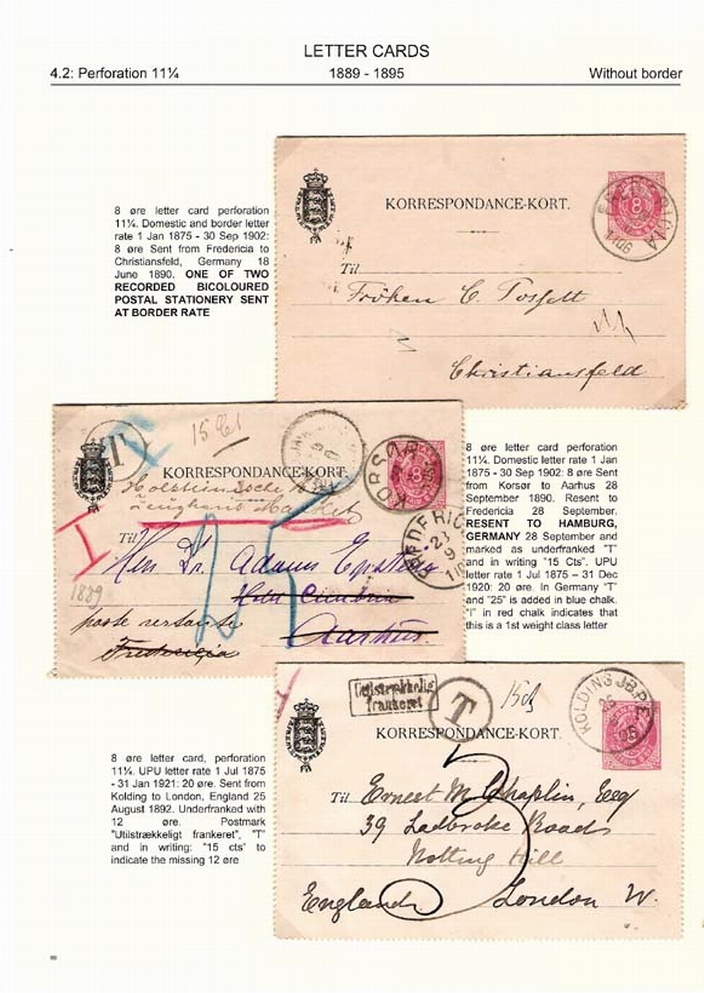 LETTER CARDS
4.2: Perforation 11¼ 1889 - 1895 Without border
8 øre letter card perforation
11¼. Domestic and border letter
rate 1 Jan 1875 - 30 Sep 1902:
8 øre Sent from Fredericia to
Christiansfeld, Germany 18
June 1890. ONE OF TWO
RECORDED BICOLOURED
POSTAL STATIONERY SENT
AT BORDER RATE
KORRESPONDANCE-KORT.
8
Til
Fröken C.
Christiansfeld
T
15 Ct
KORRESPONDANCE-KORT.
KORSØR
8
FREDERICIA
23
9
Til
Herr Dr. Adams Epstein
25
1889
Aarhus.
poste restante
Fredericia
8 øre letter card perforation
11¼. Domestic letter rate 1 Jan
1875 - 30 Sep 1902: 8 øre Sent
from Korsør to Aarhus 28
September 1890. Resent to
Fredericia 28 September.
RESENT TO HAMBURG,
GERMANY 28 September and
marked as underfranked "T"
and in writing "15 Cts". UPU
letter rate 1 Jul 1875 – 31 Dec
1920: 20 øre. In Germany "T"
and "25" is added in blue chalk.
"I" in red chalk indicates that
this is a 1st weight class letter
8 øre letter card, perforation
11¼. UPU letter rate 1 Jul 1875
- 31 Jan 1921: 20 øre. Sent from
Kolding to London, England 25
August 1892. Underfranked with
12 øre. Postmark
"Utilstrækkeligt frankeret", "T"
and in writing: "15 cts" to
indicate the missing 12 øre
Utilstrækkelig
frankeret
T
KOLDING JB.P.E.
KORRESPONDANCE-KORT.
Til Ernest M Chaplin, Esq
39 Ladbroke Road
Notting Hill
England. London W.